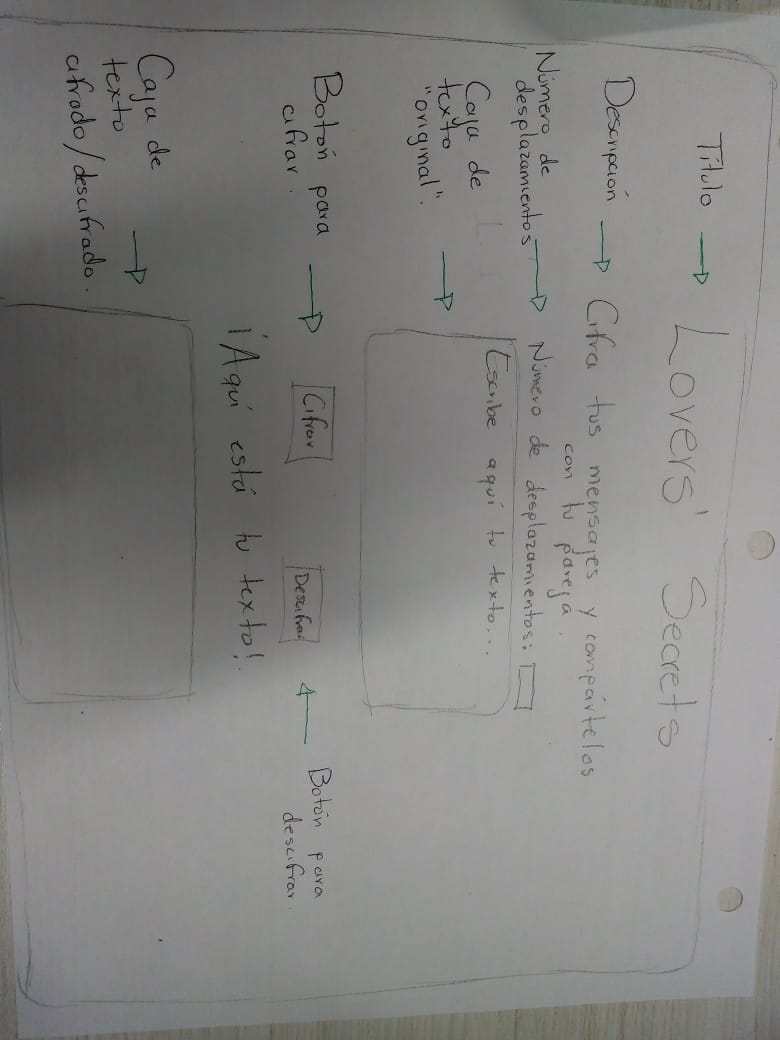 Título
Lovers' Secrets
Descripción
Cifra tus mensajes y compártelos
con tu pareja.
Número de
desplazamientos
Número de desplazamientos:
Caja de
texto
"original".
Escribe aquí tu texto...
Botón para
cifrar.
Cifrar
Descifrar
Botón para
descifrar.
¡Aquí está tu texto!
Caja de
texto
cifrado/descifrado.